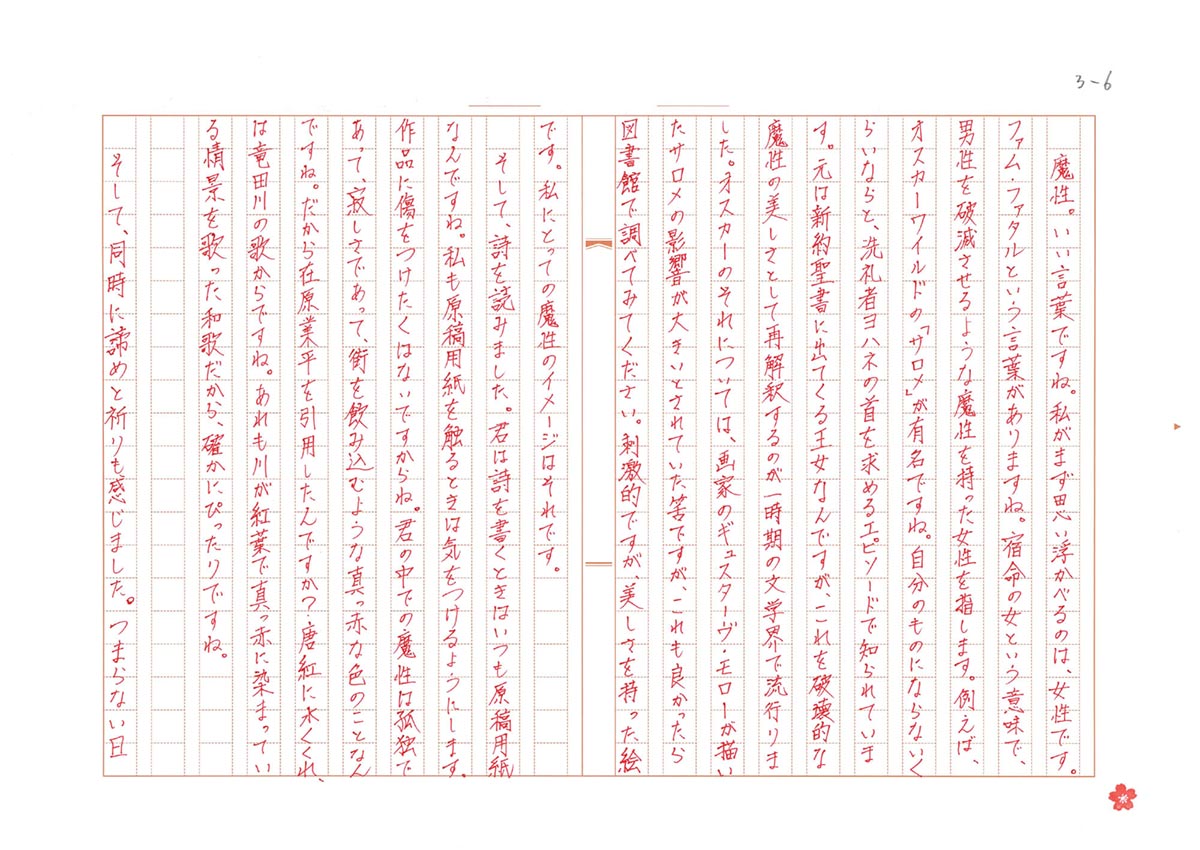 3-6
魔性。いい言葉ですね。私がまず思い浮かべるのは、女性です。
ファム・ファタルという言葉がありますね。宿命の女という意味で、
男性を破滅させるような魔性を持った女性を指します。例えば、
オスカーワイルドの「サロメ」が有名ですね。自分のものにならないく
らいならと、洗礼者ヨハネの首を求めるエピソードで知られていま
す。元は新約聖書に出てくる王女なんですが、これを破壊的な
魔性の美しさとして再解釈するのが一時期の文学界で流行りま
した。オスカーのそれについては、画家のギュスターヴ・モローが描い
たサロメの影響が大きいとされていた筈ですが、これも良かったら
図書館で調べてみてください。刺激的ですが、美しさを持った絵
です。私にとっての魔性のイメージはそれです。
そして、詩を読みました。君は詩を書くときはいつも原稿用紙
なんですね。私も原稿用紙を触るときは気をつけるようにします。
作品に傷をつけたくはないですからね。君の中での魔性は孤独で
あって、寂しさであって、街を飲み込むような真っ赤な色のことなん
ですね。だから在原業平を引用したんですか？唐紅に水くくれ、
は竜田川の歌からですね。あれも川が紅葉で真っ赤に染まってい
る情景を歌った和歌だから、確かにぴったりですね。
そして、同時に諦めと祈りも感じました。つまらない日